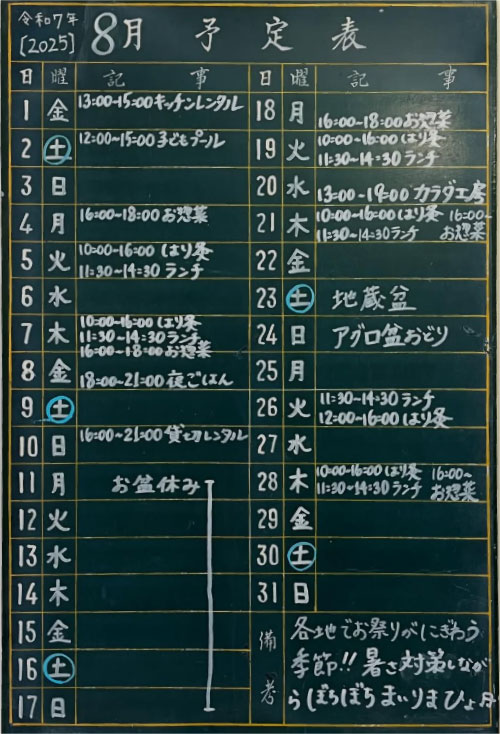 令和7年
[2025]
8月 予定表
日 曜 記事
1 金 13:00~15:00キッチンレンタル
2 土 12:00~15:00子どもプール
3 日
4 月 16:00~18:00お惣菜
5 火 10:00~16:00はり灸
11:30~14:30ランチ
6 水
7 木 10:00~16:00はり灸
11:30~14:30ランチ
16:00~18:00お惣菜
8 金 18:00~21:00夜ごはん
9 土
10 日 16:00~21:00貸切レンタル
11 月 お盆休み
12 火
13 水
14 木
15 金
16 土
17 日
日 曜 記事
18 月 16:00~18:00お惣菜
19 火 10:00~16:00はり灸
11:30~14:30ランチ
20 水 13:00~19:00カラダ工房
21 木 10:00~16:00はり灸 16:00~
11:30~14:30ランチ お惣菜
22 金
23 土 地蔵盆
24 日 アグロ盆おどり
25 月
26 火 11:30~14:30ランチ
12:00~16:00はり灸
27 水
28 木 10:00~16:00はり灸 16:00~
11:30~14:30ランチ お惣菜
29 金
30 土
31 日
備考
各地でお祭りがにぎわう
季節!!暑さ対策しなが
らぼちぼちまいりまひょ